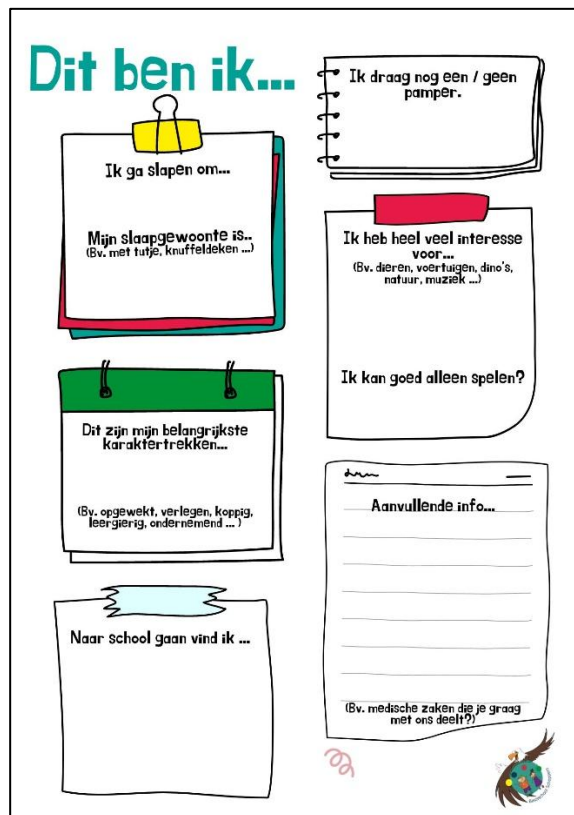 Dit ben ik...
Ik ga slapen om...
Mijn slaapgewoonte is..
(Bv. met tutje, knuffeldeken ...)
Dit zijn mijn belangrijkste
karaktertrekken...
(Bv. opgewekt, verlegen, koppig,
leergierig, ondernemend ... )
Naar school gaan vind ik ...
Ik draag nog een / geen
pamper.
Ik heb heel veel interesse
voor...
(Bv. dieren, voertuigen, dino's,
natuur, muziek ...)
Ik kan goed alleen spelen?
Aanvullende info...
(Bv. medische zaken die je graag
met ons deelt?)